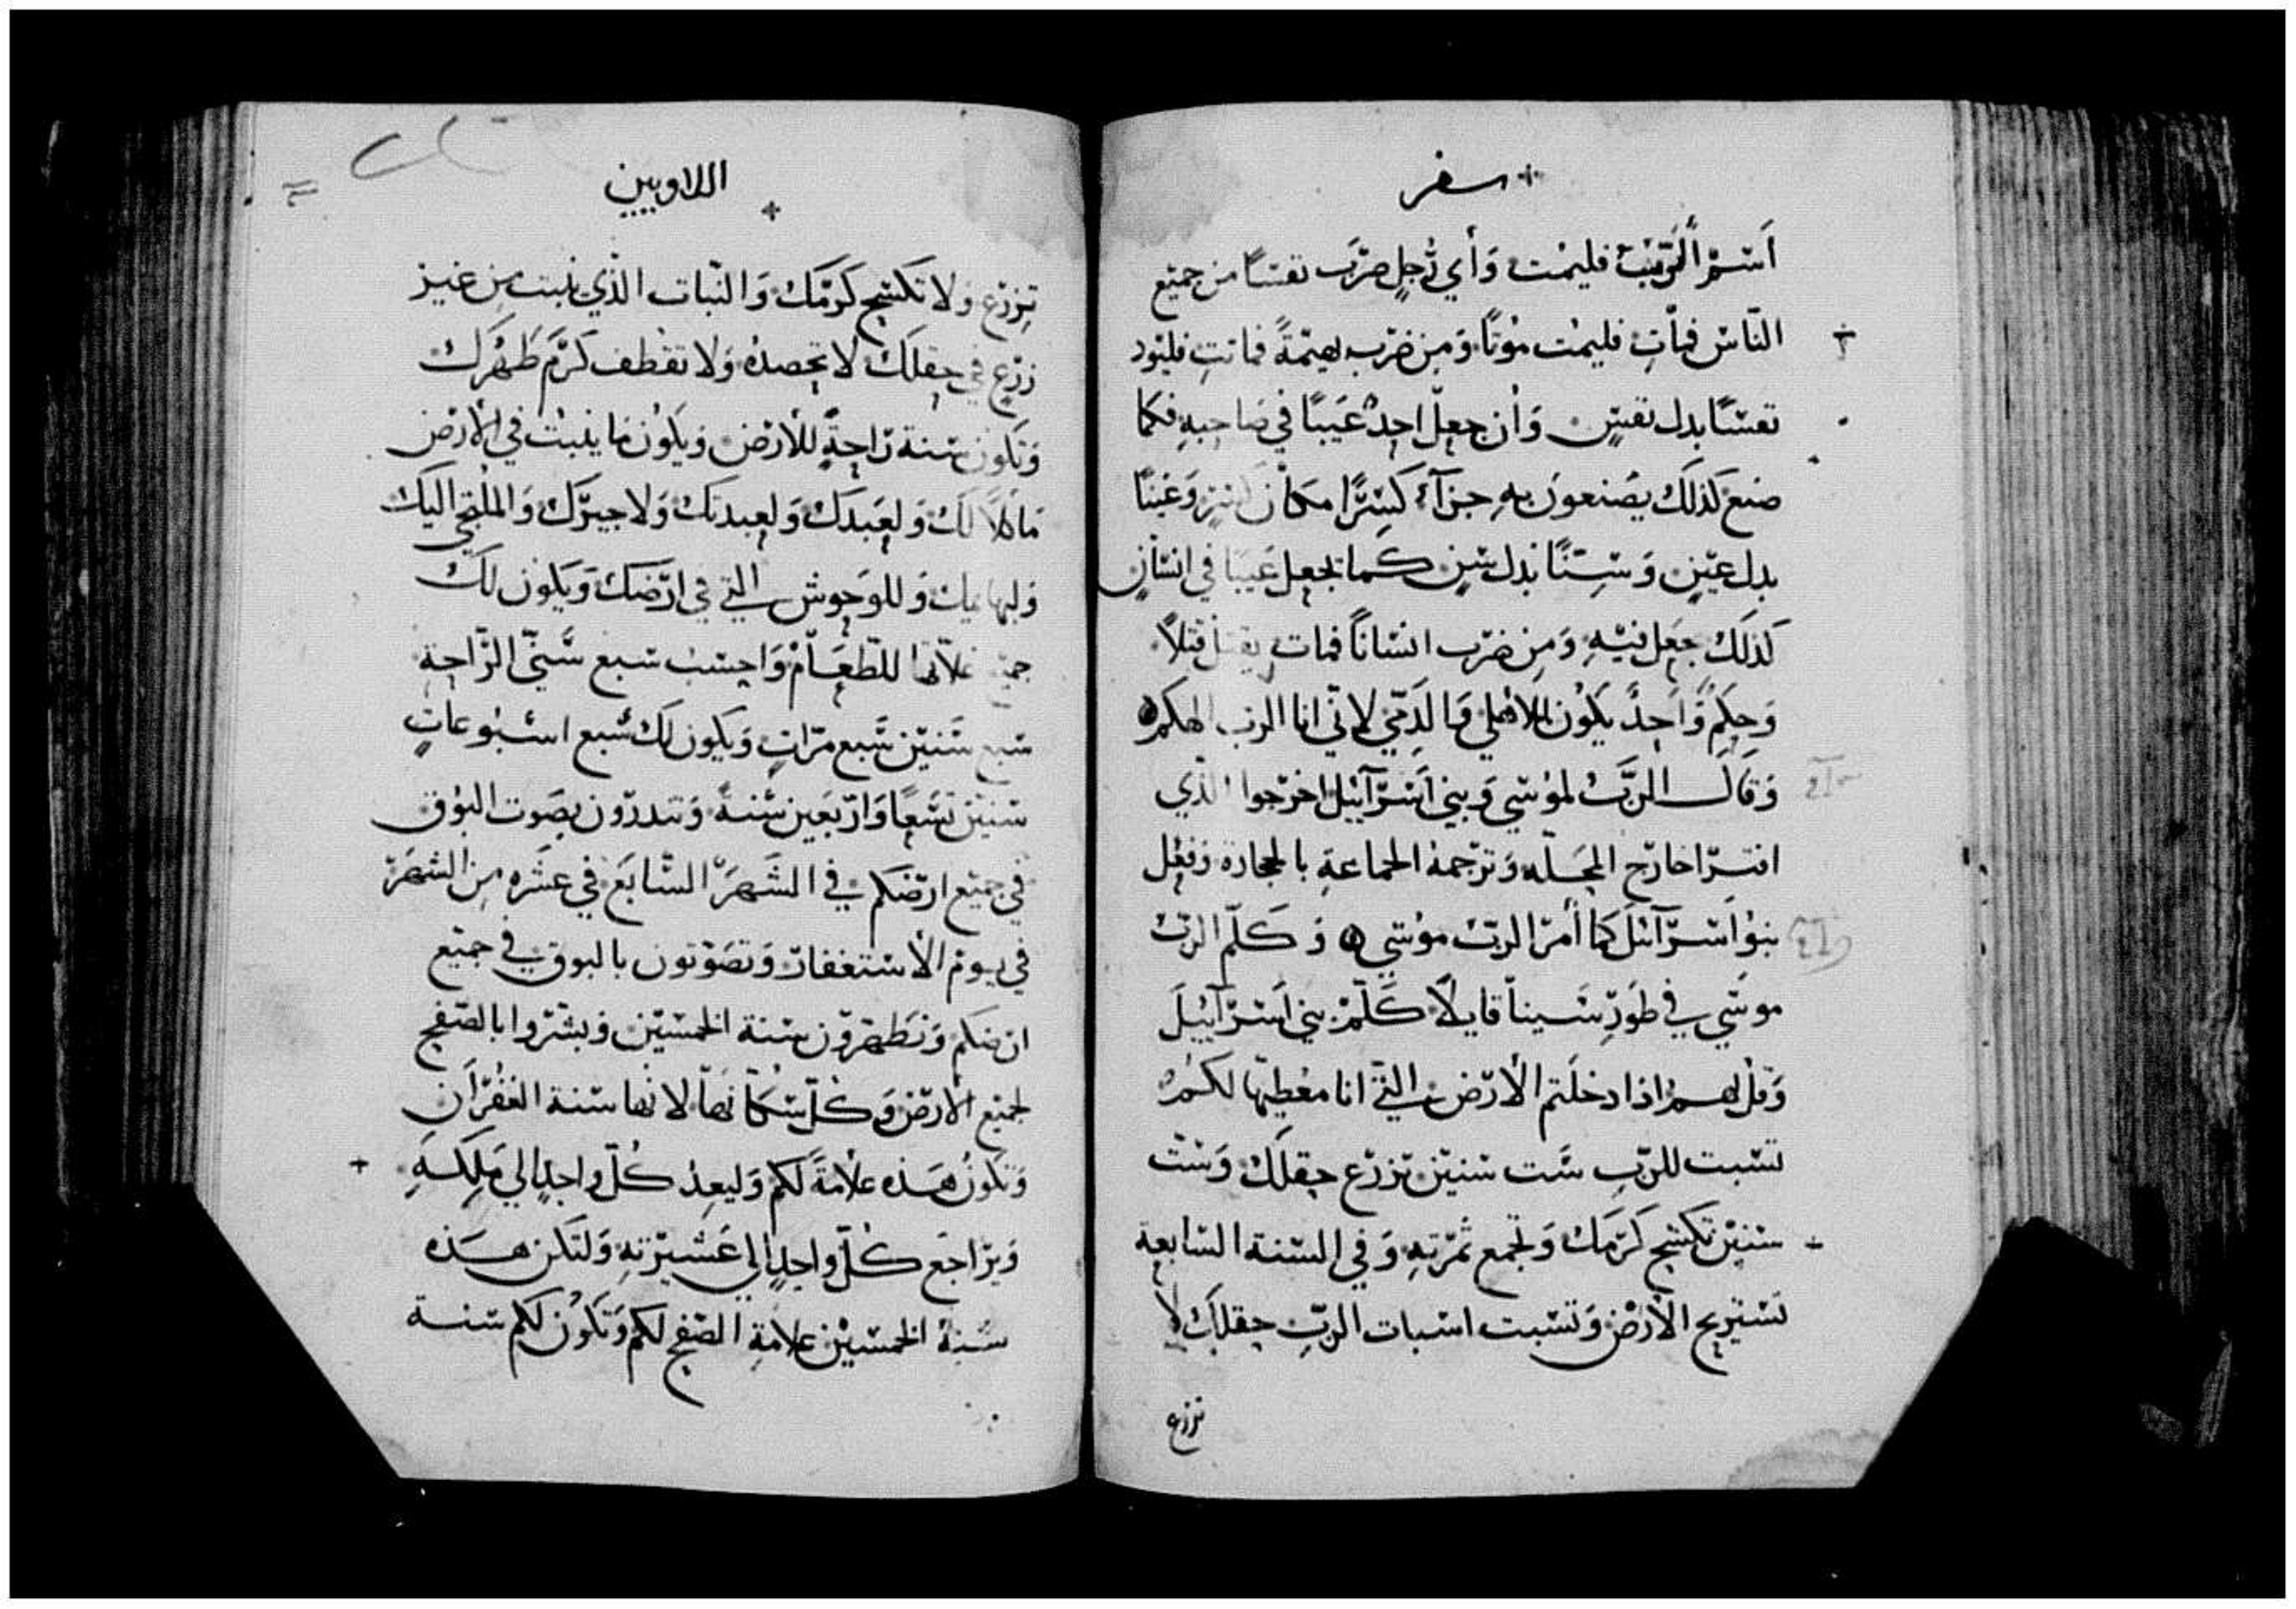 سفر
أسم الرب فليمت وأي رجل ضرب نفسًا من جميع
الناس فمات فليمت موتًا ومن ضرب بهيمةً فماتت فليود
نفسًا بدل نفس وأن جعل احدٌ عيبًا في صاحبه فكما
صنع كذلك يصنعون به جزآء كسرًا مكان كسرٍ وعينًا
بدل عينٍ وسنًا بدل سنٍ كما يجعل عيبًا في انسانٍ
كذلك يجعل فيه ومن ضرب انسانًا فمات يقتل قتلاً
وحكمٌ واحدٌ يكون للاهلي والدخي لاني انا الرب الهكم
وقال الربُ لموسي وبني اسرآئيل اخرجوا الذي
افترا خارج المحله وترجمه الجماعةِ بالحجارة وفعل
بنوا اسرآئل كما أمر الرب موسي وكلم الربُ
موسي في طور سينا قايلاً كلم بني اسرآئيلَ
وقل لهم اذا دخلتم الأرض التي انا معطيها لكم
تسبت للربِ ست سنين تزرع حقلك وست
سنين تكسح كرمك وتجمع ثمرته وفي السنة السابعة
تستريح الأرض وتسبت اسبات الربِ حقلك لا
تزرع
اللاويين
تزرع ولا تكسح كرمك والنبات الذي ينبت من غير
زرعٍ في حقلك لا تحصده ولا تقطف كرم طهرك
وتكون سنة راحةٍ للأرض ويكون ما ينبت في الأرض
مأكلاً لك ولعبدك ولعبدتك ولاجيرك والملتجي اليك
ولبهايمك وللوحوش التي في ارضك ويكون لك
جميع غلاتها للطعام واحسب سبع سني الراحة
سبع سنين سبع مراتٍ ويكون لك سبع اسبوعاتٍ
سنين تسعًا واربعين سنةً وتندرون بصوت البوق
في جميع ارضكم في الشهر السابع في عشره من الشهر
في يوم الأستغفار وتصوتون بالبوق في جميع
ارضكم وتطهرون سنة الخمسين وبشروا بالصفح
لجميع الأرض وكل سكانها لانها سنة الغفران
وتكون هذه علامةً لكم وليعد كل واحدٍ الي ملكه
ويراجع كل واحدٍ الي عشيرته ولتكن هذه
سنة الخمسين علامة الصفح لكم وتكون لكم سنة